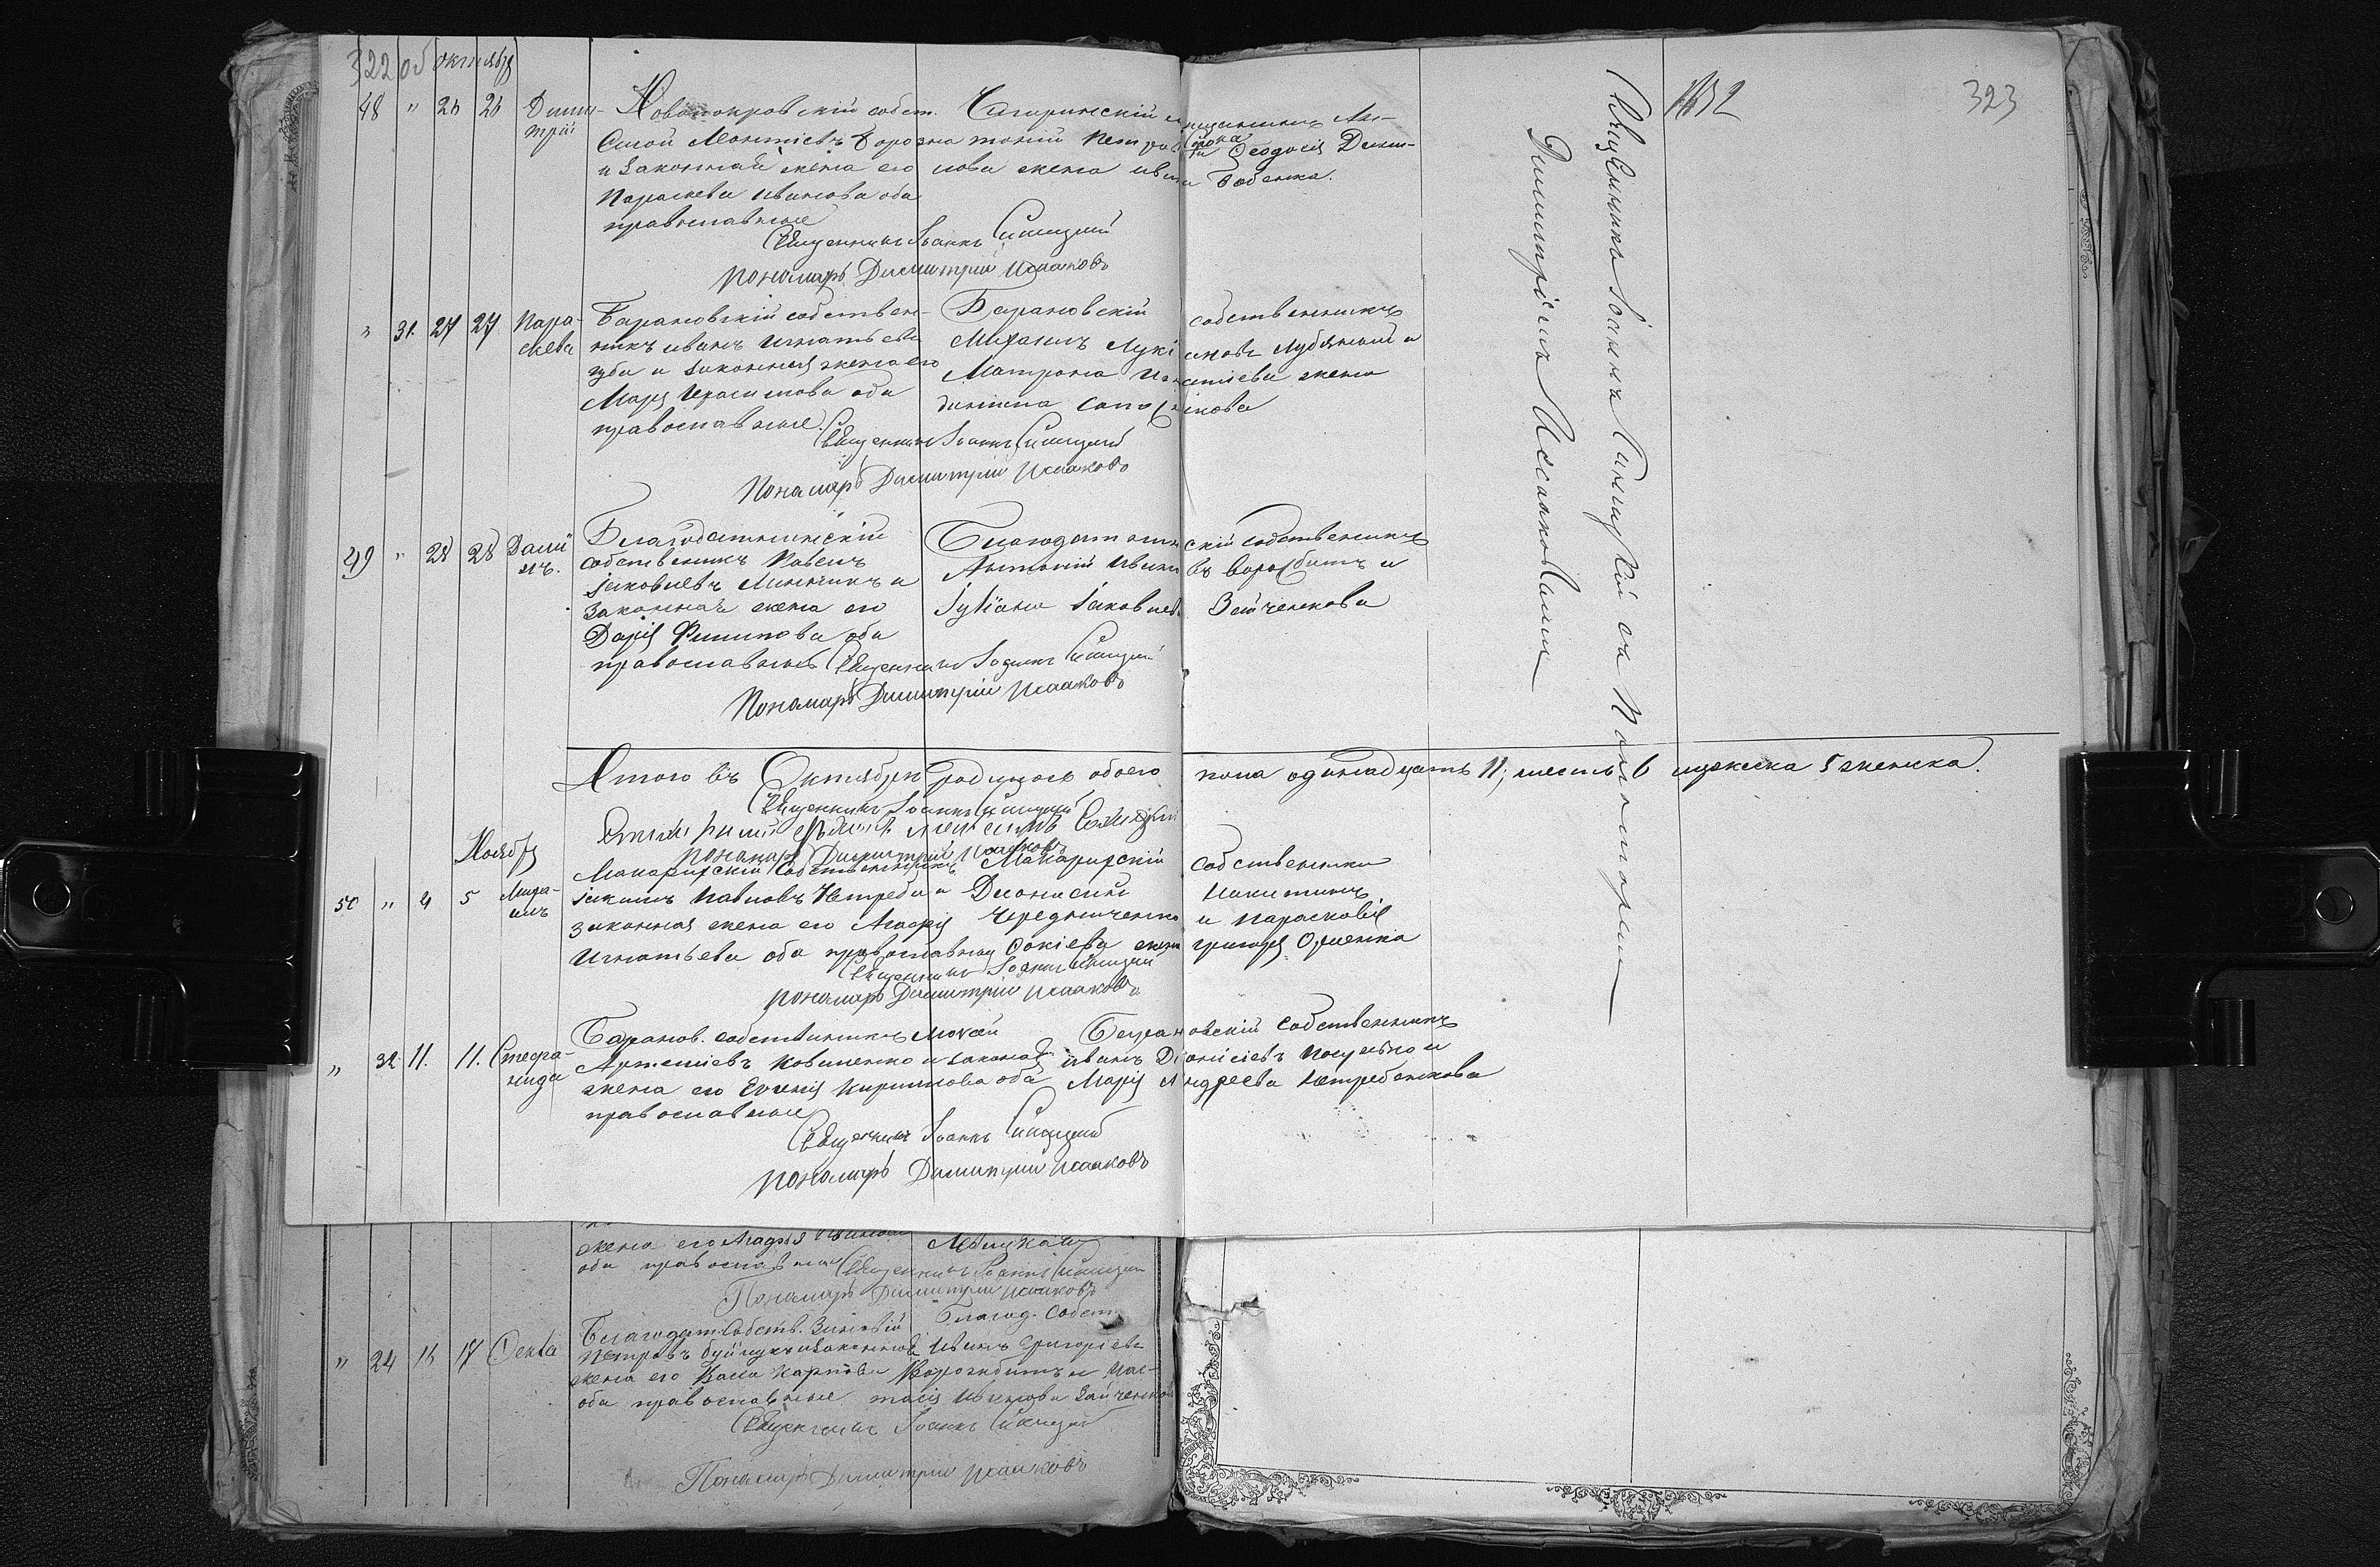 322 об октября
1632
323
48 " 26 26 Димитрій
Новопокровскій собст.
Сисой Леонтіевъ Борозна
и законная жена его
Параскева Иванова оба
православные
Чигиринскій мещанинъ Антоній Петровъ
и Феодосія Дими-
нова жена Ивана Бабенка.
Священникъ Іоаннъ Синицкій
Пономарь Димитрій Исааковъ
" 31. 27 27 Параскева
Барановскій собствен-
никъ Иванъ Игнатьевъ
губа и законная жена его
Марія Герасимова оба
православные.
Барановскій собственникъ
Михаилъ Лукіановъ Лубяной и
Матрона Игнатіева жена
Сапожникова
Священникъ Іоаннъ Синицкій
Пономарь Димитрій Исааковъ
49 " 28 28 Даніилъ.
Благодатнинскій
собственникъ Павелъ
Іаковлевъ Линникъ и
законная жена его
Дарія Филипова оба
православные
Благодатнинскій собственникъ
Антоній Ивановъ Воробитъ и
Іуліана Іаковлева Зайченкова
Священникъ Іоаннъ Синицкій
Пономарь Димитрій Исааковъ
Итого въ Октябрѣ родилось обоего пола одинадцать 11; шесть 6 мужеска 5 женска.
Священникъ Іоаннъ Синицкій
Пономарь Димитрій Исааковъ
Ноябрь
50 " 4 5 Михаилъ
Макарихскій собственникъ
Іакимъ Павловъ Нетреба и
законная жена его Агафія
Игнатьева оба православные
Макарихскій собственники
Діонисій Никитинъ
Чередниченко и Парасковія
Фокіева жена григорія
Священникъ Іоаннъ Синицкій
Пономарь Димитрій Исааковъ
" 32 11. 11. Стефанида
Баранов. собственникъ Мокей
Артеміевъ Коваленко и законая
жена его Евгенія Кирилова оба
православные
Барановскій собственникъ
Иванъ Діонисіевъ и
Марія Андреева Нетребенкова
Священникъ Іоаннъ Синицкій
Пономарь Димитрій Исааковъ
Священникъ Іоаннъ Синицкій съ Пономаремъ
Димитріемъ Исааковымъ
жена его Агафія
оба православные
Священникъ Іоаннъ Синицкій
Пономарь Димитрій Исааковъ
" 24 16 17 Фекла
Благодат. Собств. Зиновій
Петровъ и законная
жена его Васса Карпова
оба православные
Благод. Собст.
Иванъ Григоріевъ
Ворожбитъ и Нас-
тасія Иванова Зайченкова
Священникъ Іоаннъ Синицкій
Пономарь Димитрій Исааковъ